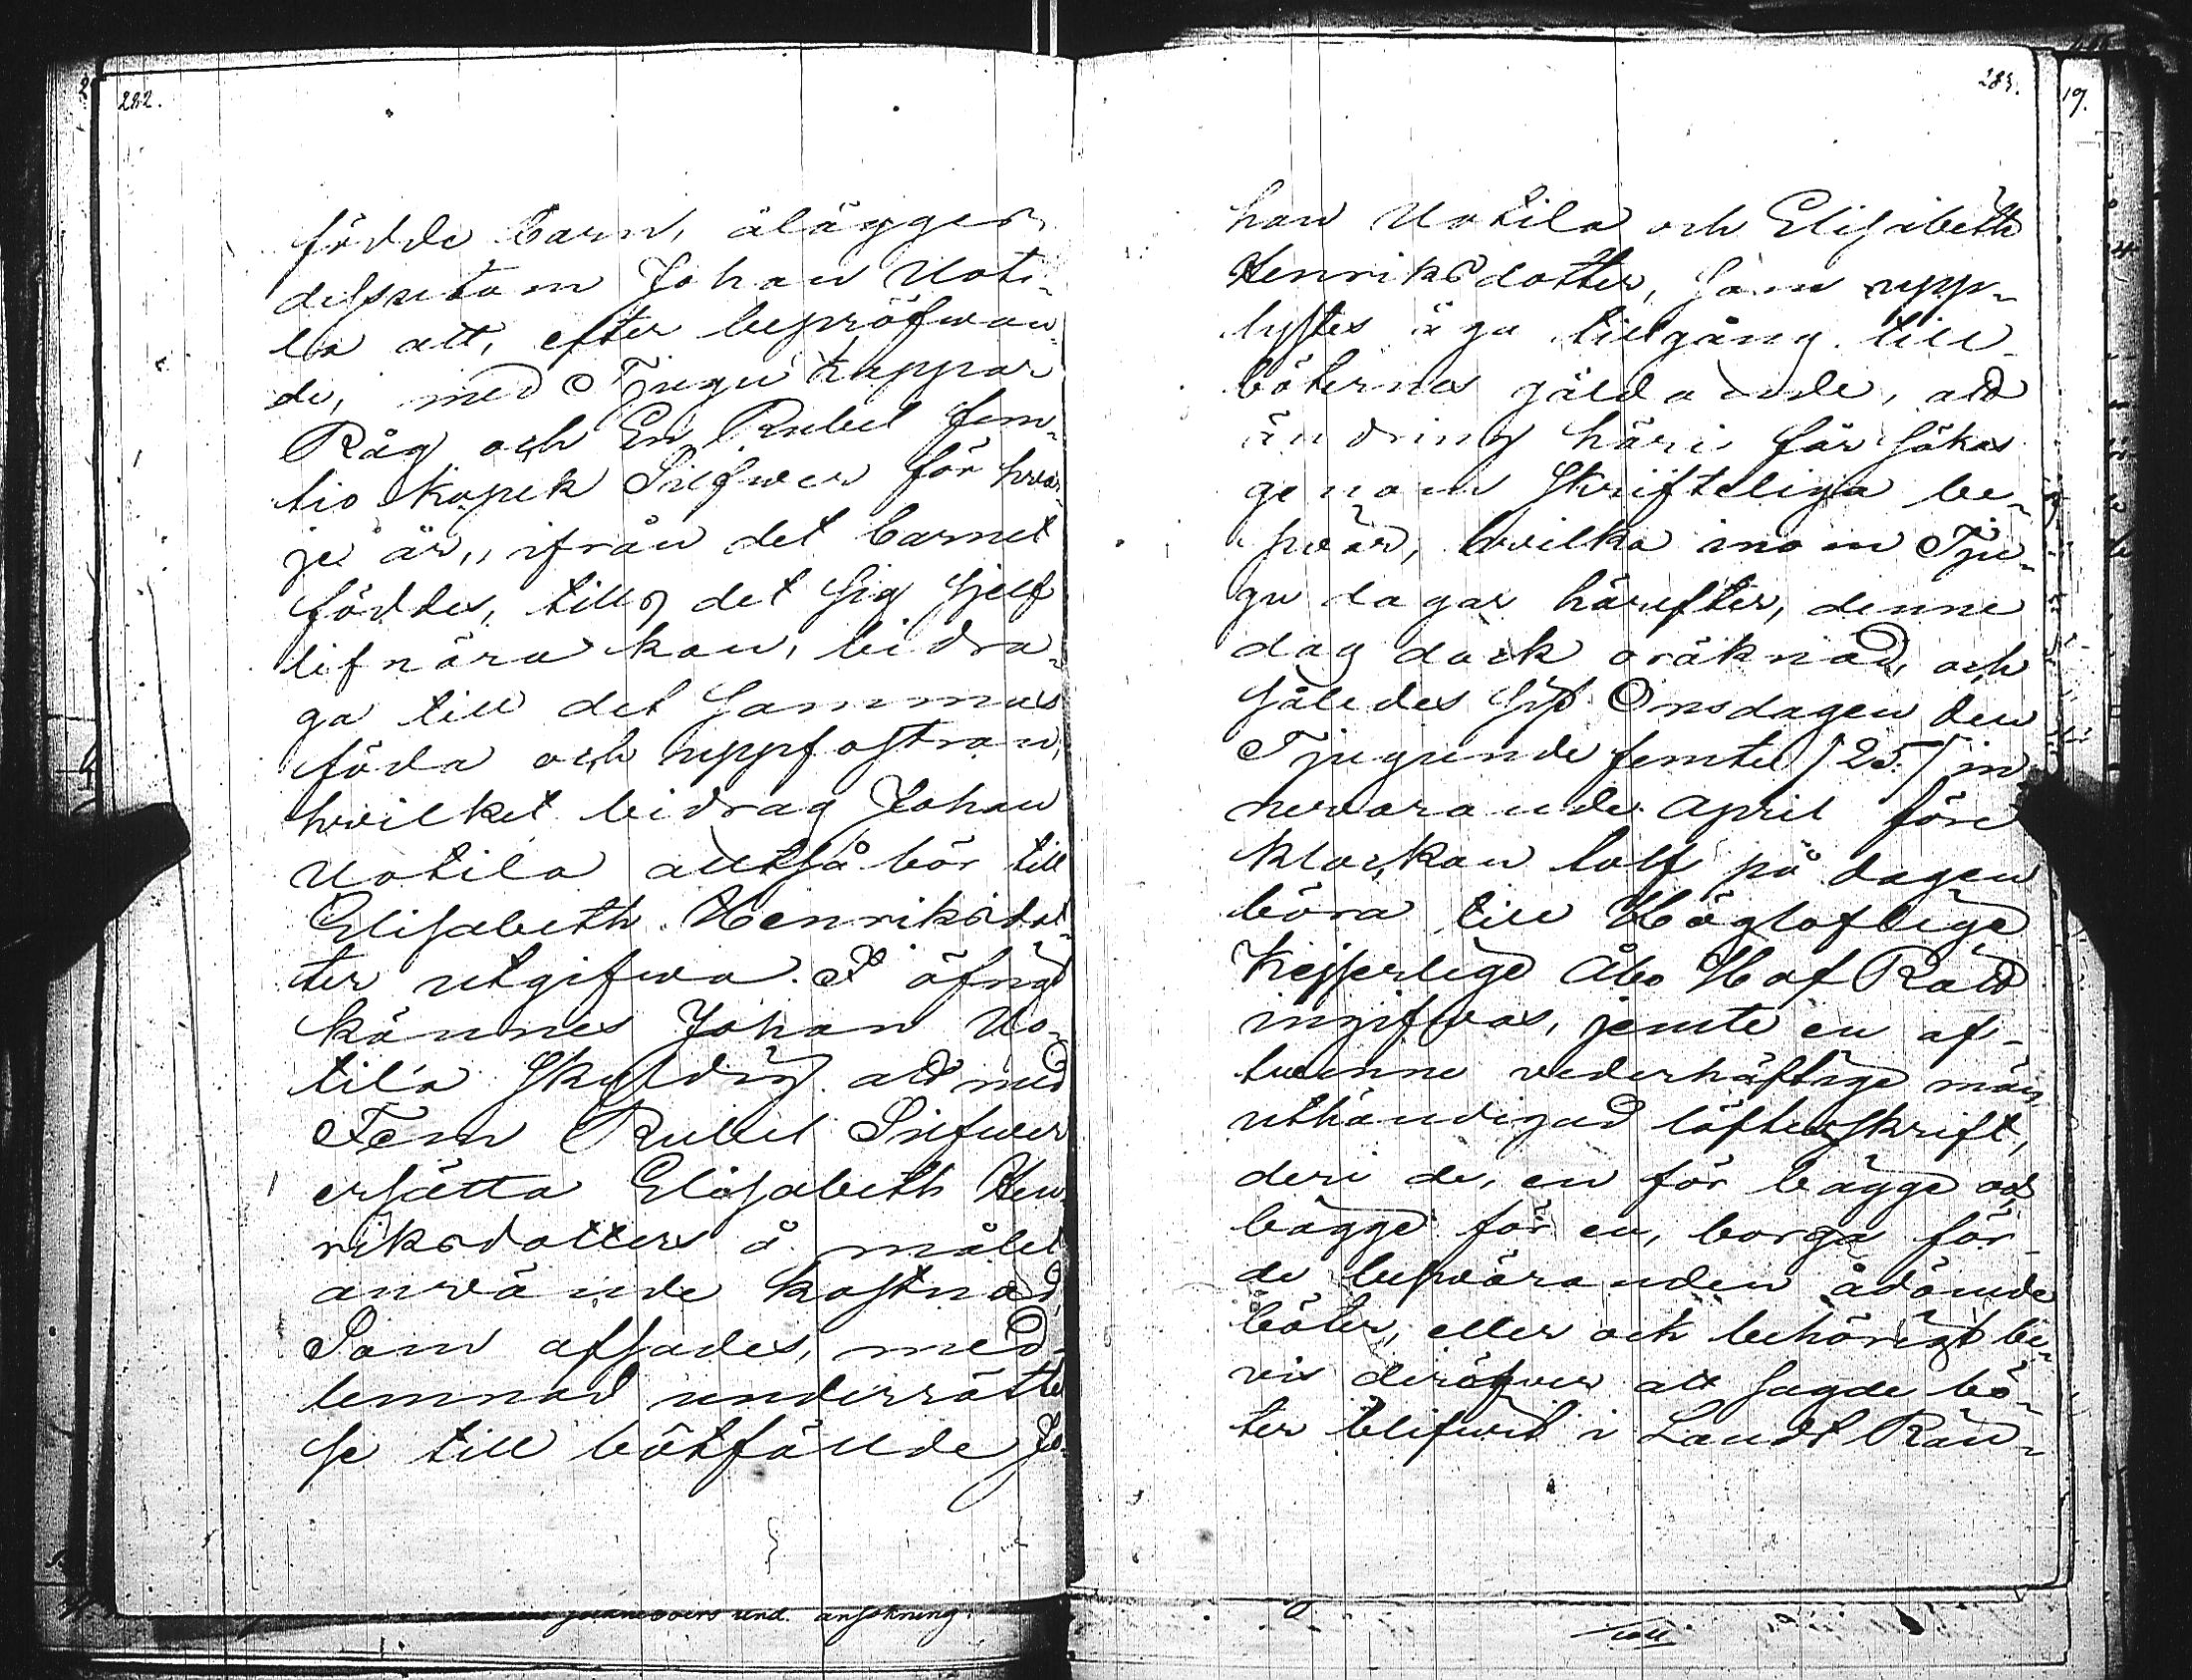 282.
födde barn, ålägges
dessutom Johan Uoti¬
la att, efter bepröfwan¬
de, med Tjugu kappar
Råg och En Rubel fem¬
tio kopek Silfwer för hwar¬
je år, ifrån det barnet
föddes, tills det sig sjelf
lifnära kan, bidra¬
ga till det sammas
föda och uppfostran,
hwilket bidrag Johan
Uotila alltså bör till
Elisabeth Henriksdot¬
ter utgifwa. I öfrigt
kännes Johan Uo¬
tila skyldig att med
Fem Rubel Silfwer
ersätta Elisabeth Hen¬
riksdotters å målet
använde kostnad,
Som afsades, med
lemnad underrättel¬
se till bötfällde Jo¬
283.
han Uotila och Elisabeth
Henriksdotter, som upp¬
lystes äga tillgång till
böternas gäldande, att
ändring häri får sökas
genom skriftliga be¬
svär, hvilka inom Tju¬
gu dagar härefter, denne
dag dock oräknad, och
således sist Onsdagen den
Tjugunde femte /25/ in¬
nevarande April före
klockan tolf på dagen
böra till Högloflige
Kejserlige Åbo Hof Rätt
ingifwas, jemte en af
twenne vederhäftige män
uthändigad löftesskrift,
deri de, en för bägge och
bägge för en, borga för
de besväranden ådömde
böter, eller ock behörigt be¬
vis deröfwer att sagde bö¬
ter blifwit i Landt Rän¬
19.
und. ansökning.